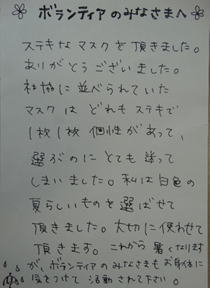 ボランティアのみなさまへ
ステキなマスクを頂きました。
ありがとうございました。
社協に並べられていた
マスクは どれもステキで
1枚1枚 個性があって、
選ぶのに とても迷って
しまいました。私は白色の
夏らしいものを選ばせて
頂きました。大切に使わせて
頂きます。これから 暑くなります
が、ボランティアのみなさまもお身体に
気をつけて 活動されて下さい。